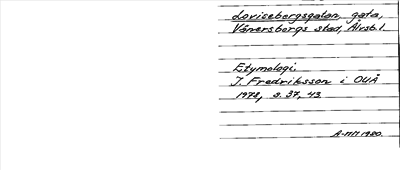 Loviseborgsgatan, gata,
Vänersborgs stad, Älvsb. l.
Etymologi.
I. Fredriksson i OUÅ
1972, s. 37, 43.
A-M M 1980.